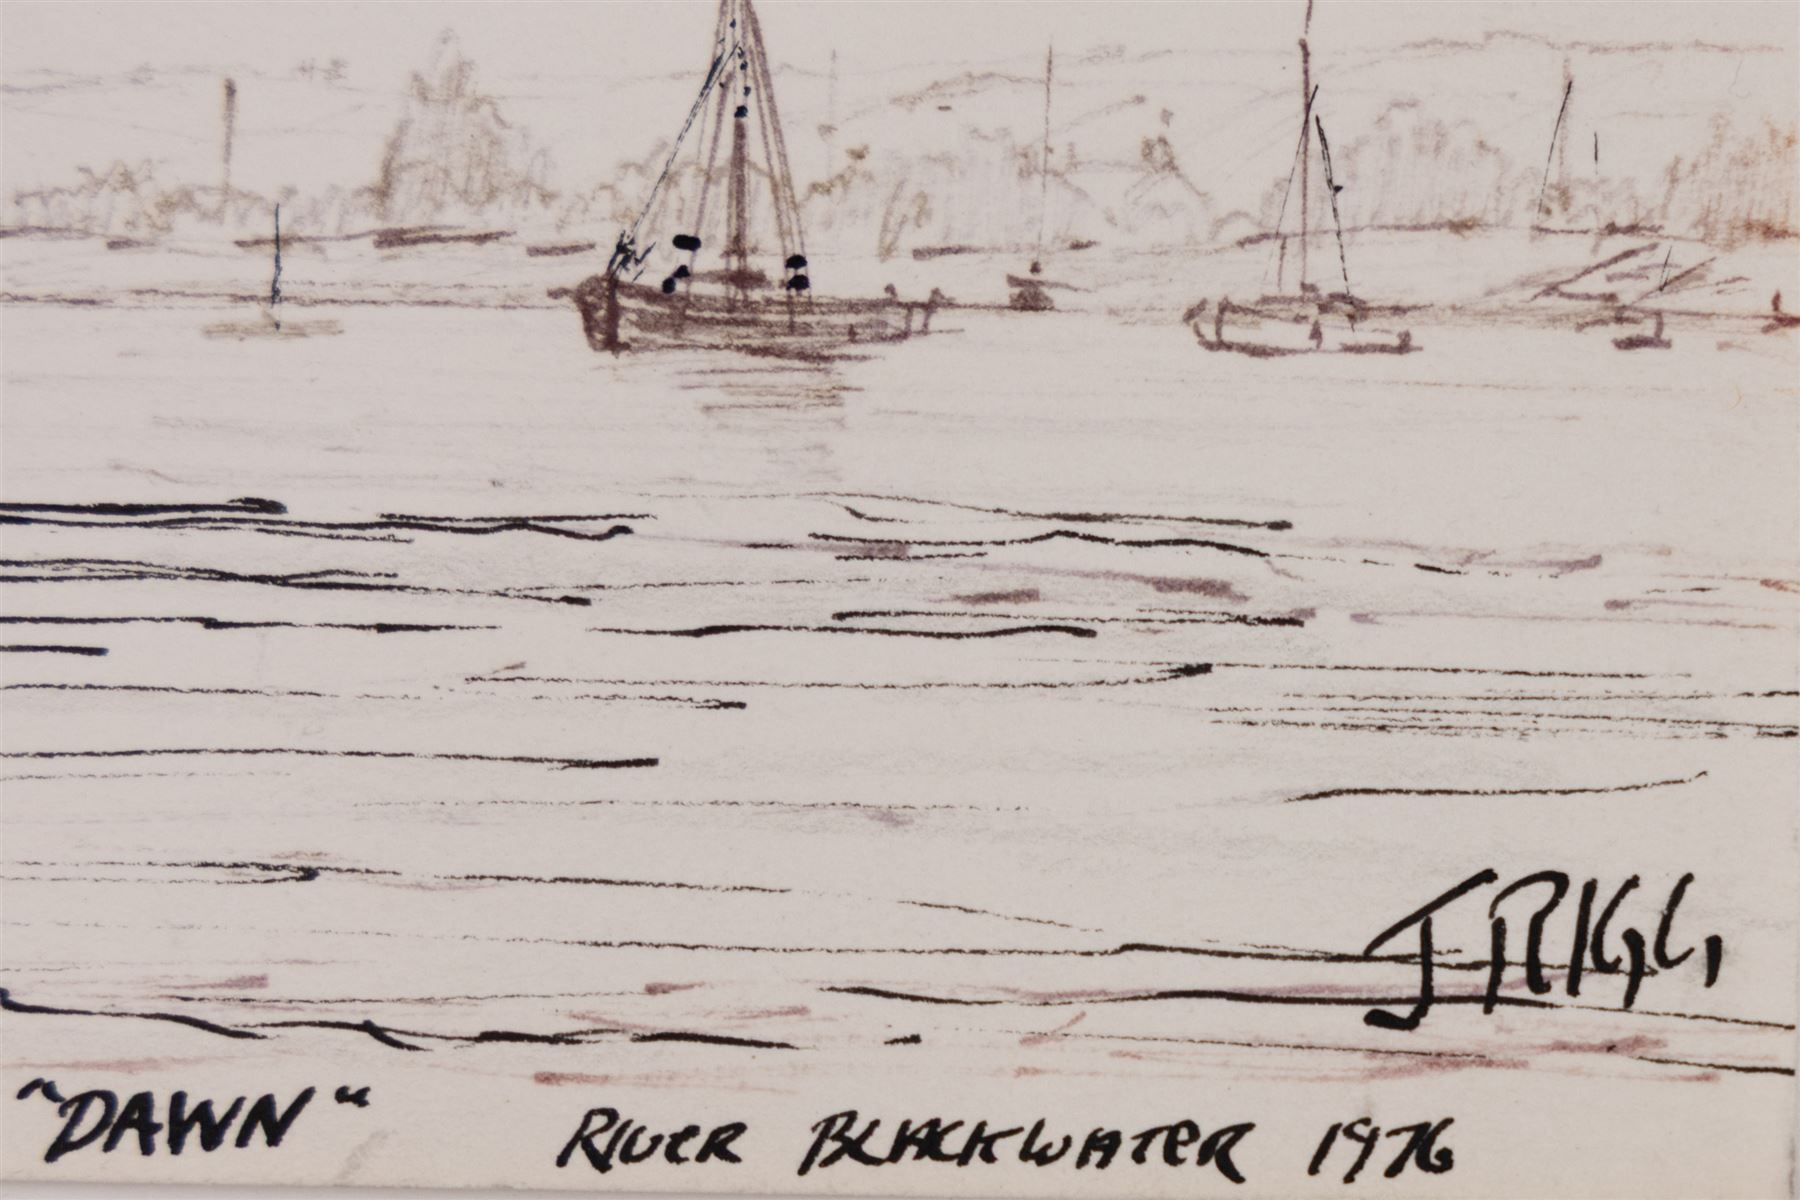 J RIGG
"DAWN" RIVER BLACKWATER 1976